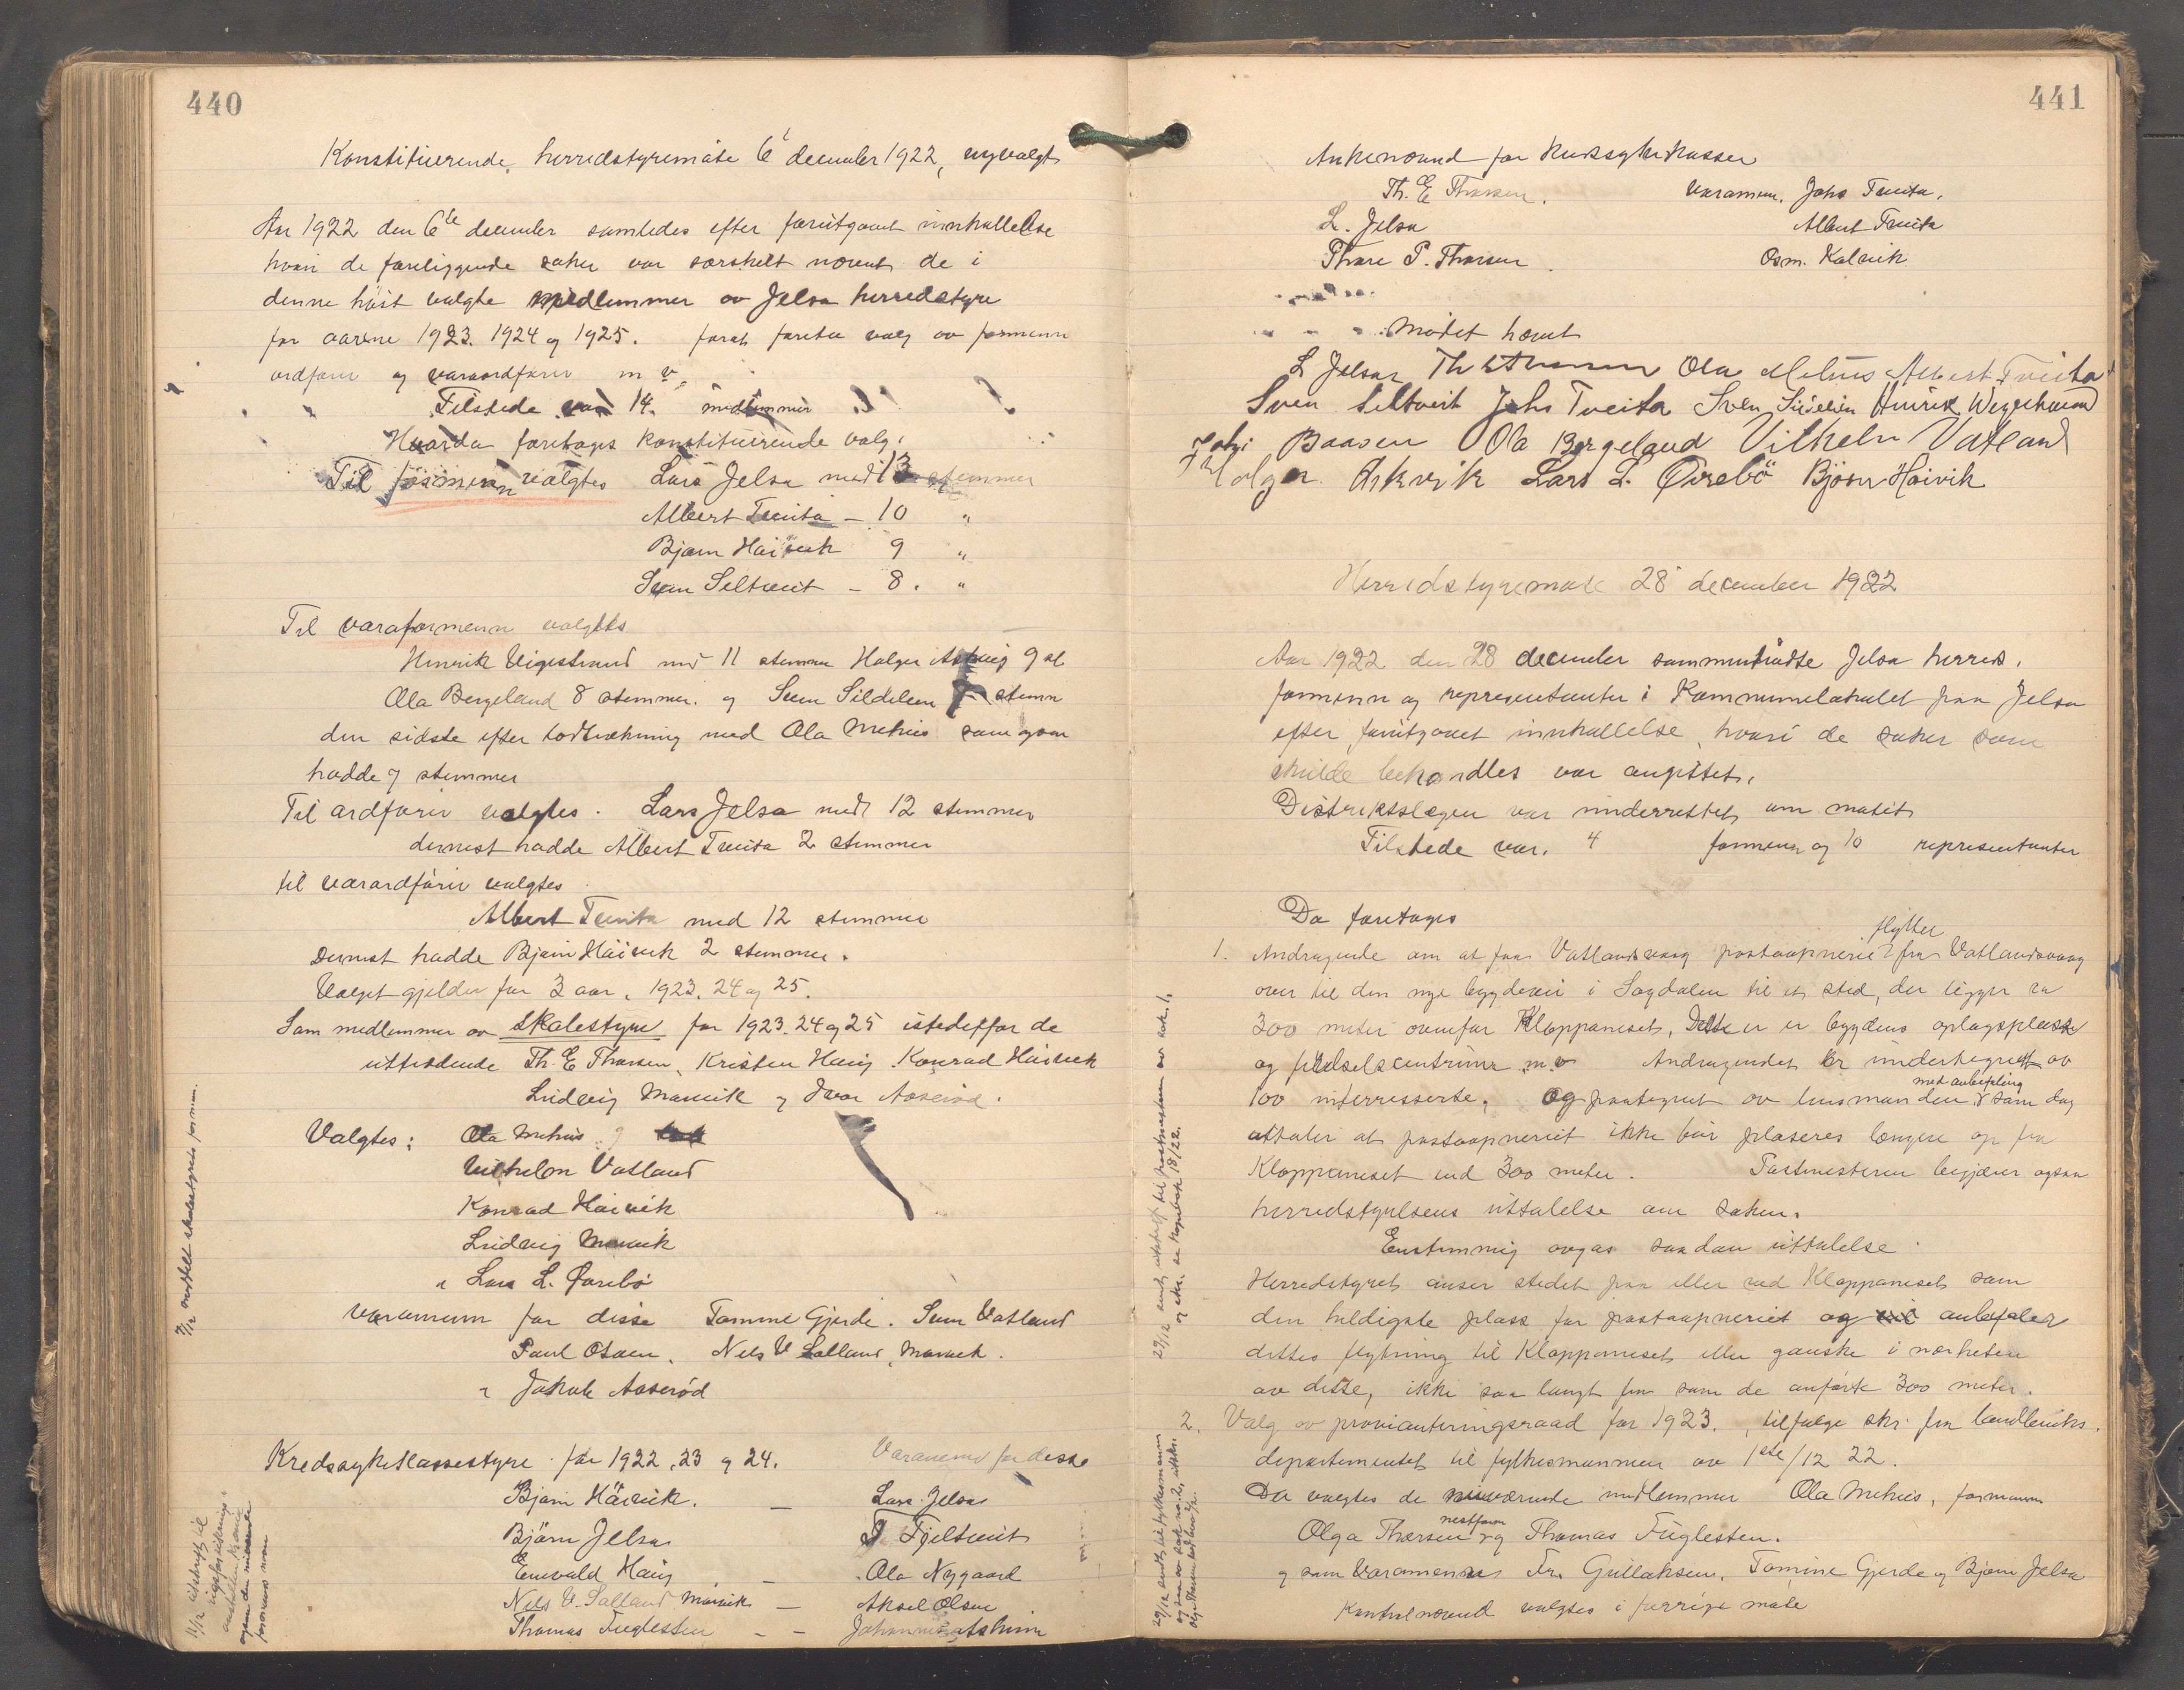 440
Konstituerende herredstyremøte 6' december 1922, nyvalgt
Aar 1922 den 6te december samledes efter forutgaaet innkallelse
hvori de foreliggende saker var særskelt nævnt de i
denne høst valgte medlemmer av Jelsa herredstyre
for aarene 1923. 1924 og 1925. forat foreta valg av formenn
ordfører og varaordfører m v.
Tilstede var 14 medlemmer
Hvorda foretages konstituerende valg.
Til formenn valgtes Lars Jelsa med 13 stemmer
Albert Tveita – 10 "
Bjørn Høivik 9 "
Sven Seltveit – 8. "
Til varaformenn valgtes
Henrik Vigestrand med 11 stemmer Holger Askvig 9 st
Ola Bergeland 8 stemmer. og Sven Sildelien 7 stemm
den sidste efter lodtrækning med Ola Mehus som ogsaa
hadde 7 stemmer
Til ordfører valgtes. Lars Jelsa med 12 stemmer
dernest hadde Albert Tveita 2 stemmer
til varordfører valgtes
Albert Tveita med 12 stemmer
Dernest hadde Bjørn Høivik 2 stemmer.
Valget gjelder for 3 aar. 1923. 24 og 25.
Som medlemmer av skolestyre for 1923. 24 og 25 istedetfor de
uttrædende Th. E Thorsen, Kristen Haug Konrad Høivik
Ludvig Marvik og Ivar Aaserød.
Valgtes: Ola Mehus
Vilhelm Vatland
Konrad Høivik
Ludvig Marvik
" Lars L. Ørebø
varamenn for disse Tomine Gjerde. Sven Vatland
Paul Olsen. Nels V Salland, Marvik.
" Jakob Aaserød
Kredssykekassestyre for 1922, 23 og 24. Varamenn for disse
Bjørn Høivik. – Lars Jelsa
Bjørn Jelsa T Fjeltveit
Enevald Haug – Ola Nygaard
Nels V. Salland Marvik – Aksel Olsen
Thomas Fuglestein – –
441
Ankenævnd for kredssykekassen
Th. E Thorsen. Varamenn. Johs Tveita.
L. Jelsa Albert Tveita
Thore P. Thorsen Osm. Kalvik
Møtet hævet
L Jelsa Th E Thorsen Ola Mehus Albert Tveita
Sven Seltveit Johs Tveita Sven Sildelien Henrik Wigestrand
Baasen Ola Bergeland Vilhelm Vatland
Holger Askvik Lars L. Ørebö Bjørn Høivik
Herredstyremøte 28' december 1922
Aar 1922 den 28 december sammentraadte Jelsa herreds.
formenn og representanter i Kommunelokalet paa Jelsa
efter forutgaaet innkallelse, hvori de saker som
skulde behandles var angittet.
Distriktslægen var underrettet om møtet
Tilstede var. 4 formenn og 10 representanter
Da foretages
1. Andragende om at faa Vatlandsvaag postaapneri flyttet fra Vatlandsvaag
over til den nye bygdevei i Sagdalen til et sted, der ligger ca
300 meter ovenfor Kloppaneset. Dette er er bygdens oplagsplass
og ferdselscentrum m.v Andragendet er undertegnet av
100 interresserte, og paategnet av lensmanden med anbefaling som dog
uttaler at postaapneriet ikke bør plaseres længere op fra
Kloppaneset end 300 meter. Postmesteren begjærer ogsaa
herredstyrelsens uttalelse om saken.
Enstemmig avgas saadan uttalelse.
Herredstyret anser stedet paa eller ved Kloppaneset som
den heldigste plass for postaapneriet og anbefaler
dettes flytning til Kloppaneset eller ganske i nærheten
av dette, ikke saa langt fra som de anførte 300 meter.
2. Valg av provianteringsraad for 1923. tilfølge skr. fra landbruks.
departementet til fylkesmannen av 1ste/12 22.
Da valgtes de nuværende medlemmer Ola Mehus, formann
Olga Thorsen nestform og Thomas Fuglestein.
og som varamenn Fr. Gullaksen, Tomine Gjerde og Bjørn Jelsa
Kontrolnævnd valgtes i forrige møte